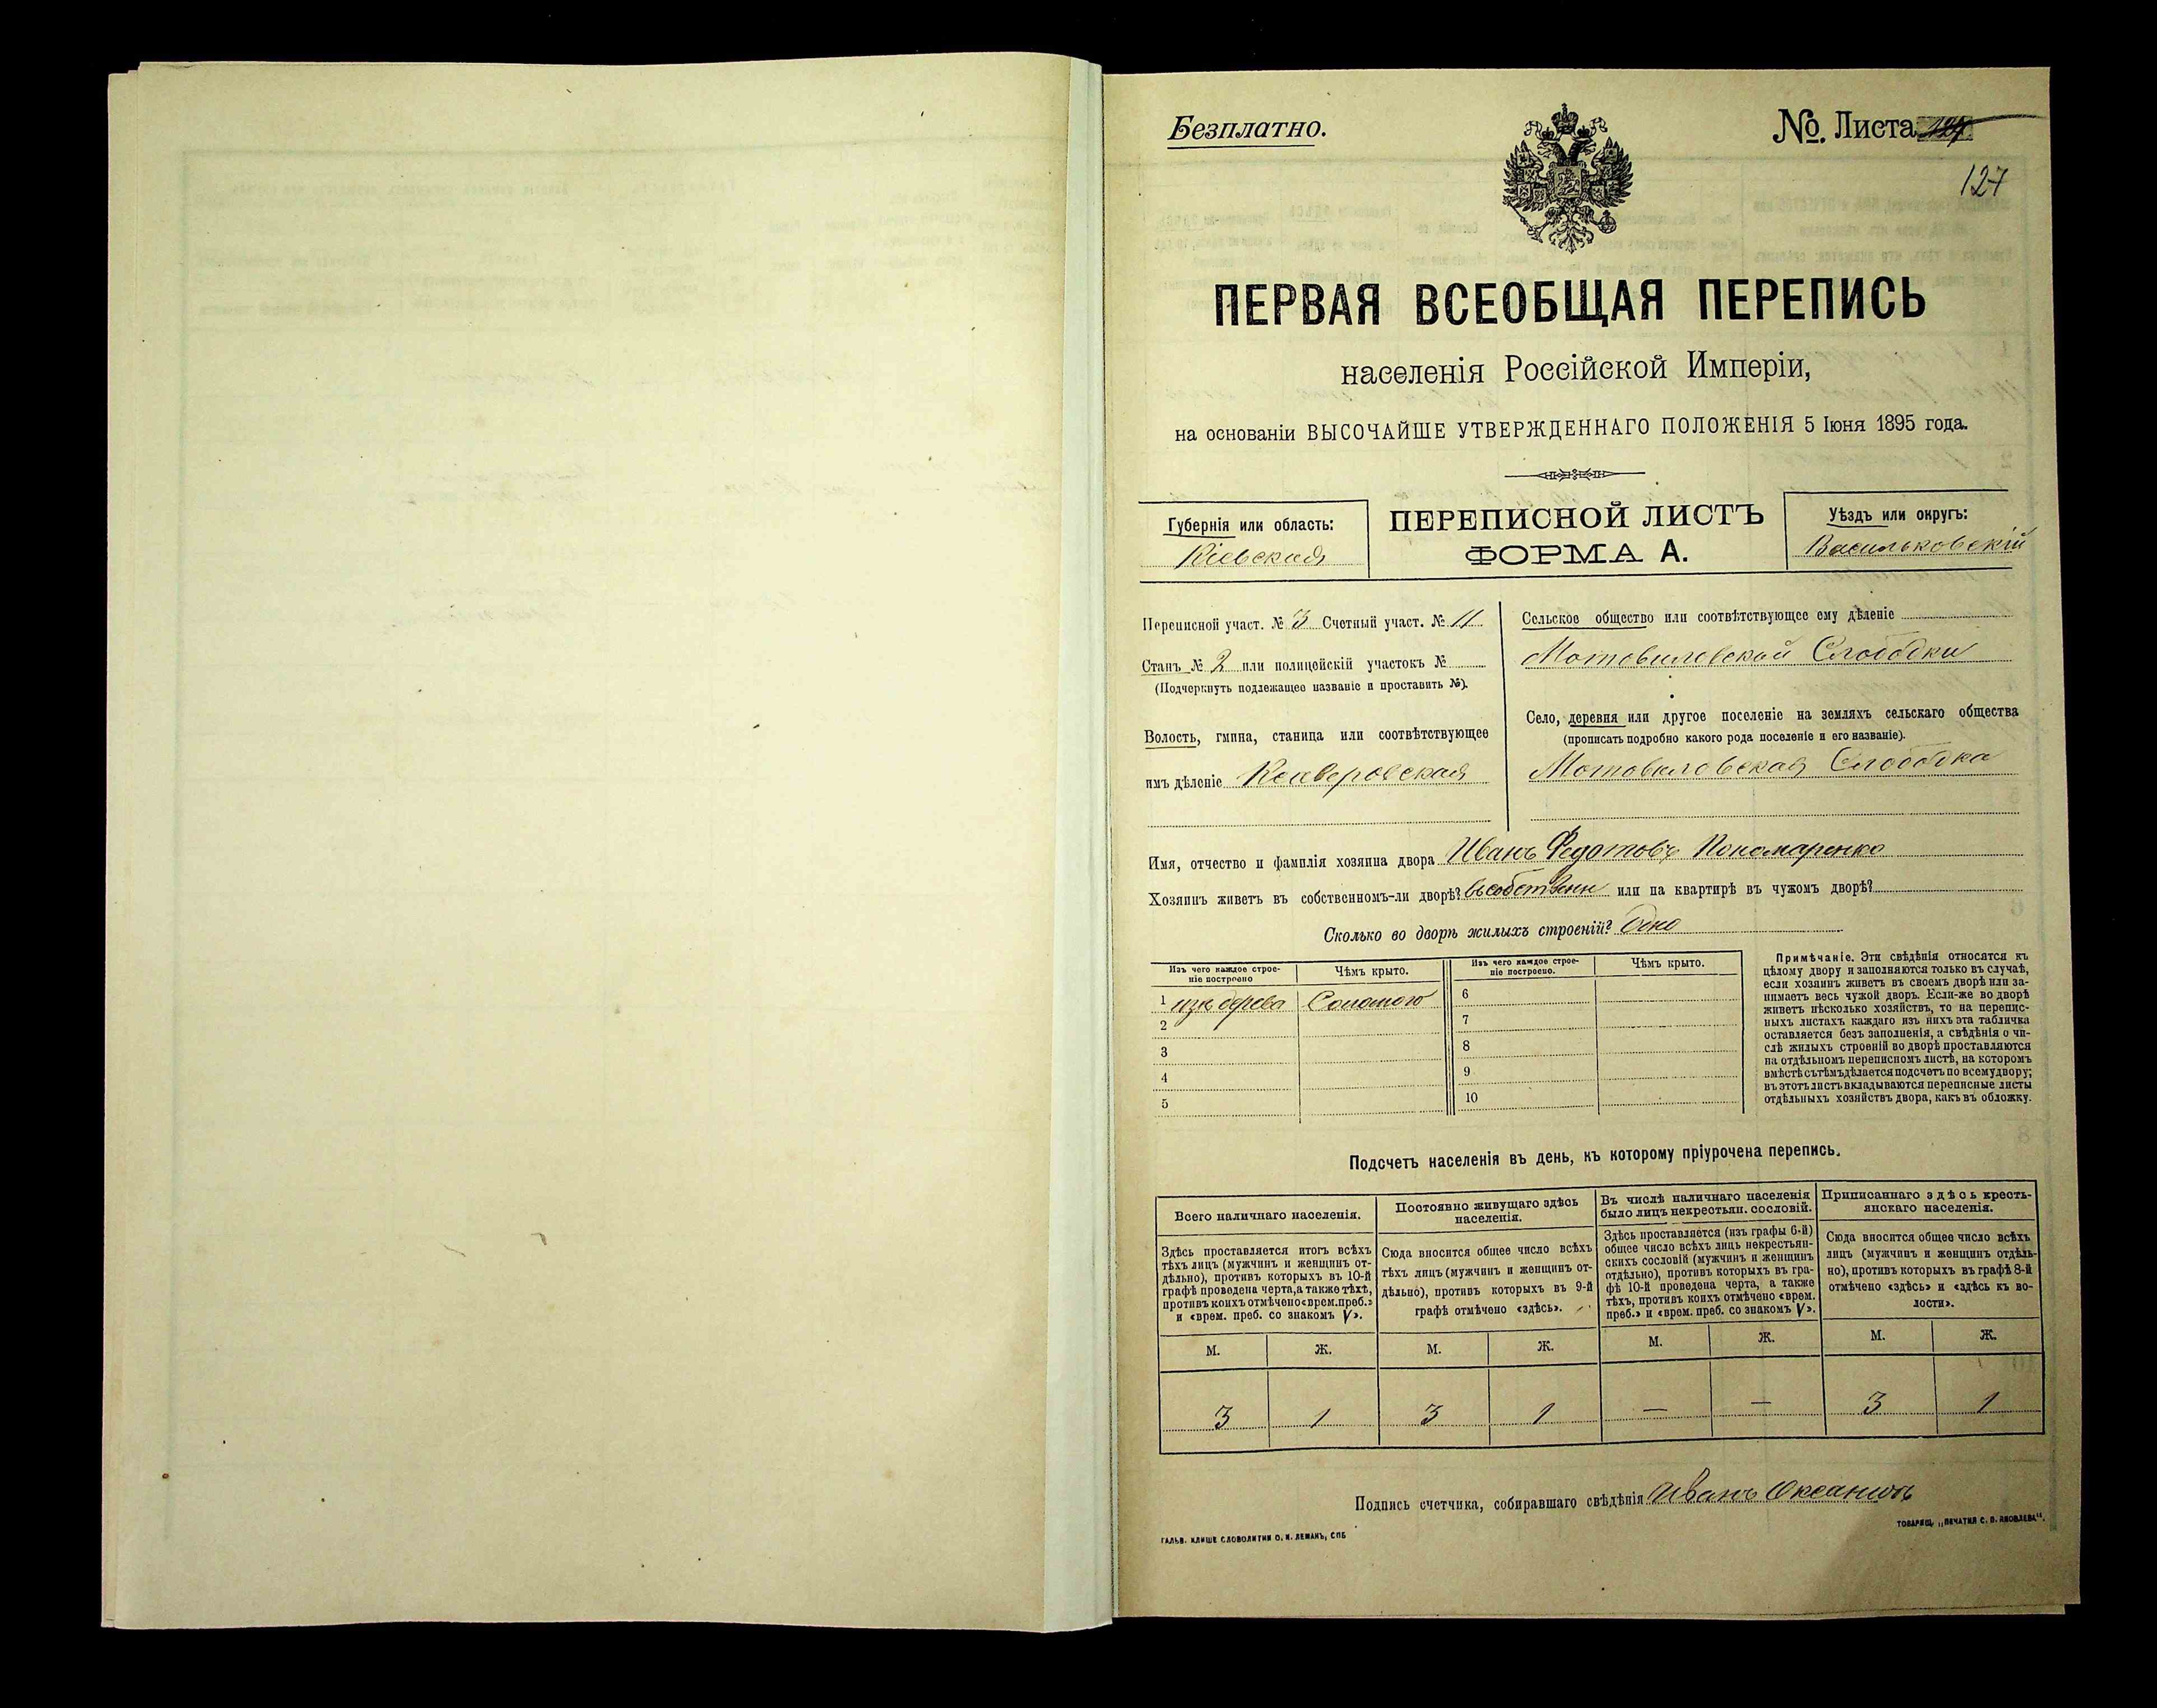 Безплатно.
№ Листа
127
ПЕРВАЯ ВСЕОБЩАЯ ПЕРЕПИСЬ
населенія Россійской Имперіи,
на основаніи ВЫСОЧАЙШЕ УТВЕРЖДЕННАГО ПОЛОЖЕНІЯ 5 Іюня 1895 года.
Губернія или область:
Кіевская
ПЕРЕПИСНОЙ ЛИСТЪ
ФОРМА А.
Уѣздъ или округъ:
Васильковскій
Переписной участ. № 3 Счетный участ. № 11
Станъ № 2 или полицейскій участокъ №
(Подчеркнуть подлежащее названіе и проставить №).
Волость, гмина, станица или соотвѣтствующее
имъ дѣленіе
Сельское общество или соотвѣтствующее ему дѣленіе
Мотовиловской Слободки
Село, деревня или другое поселеніе на земляхъ сельскаго общества
(прописать подробно какого рода поселеніе и его названіе).
Мотовиловская Слободка
Имя, отчество и фамилія хозяина двора Иванъ Федотовъ Пономаренко
Хозяинъ живетъ въ собственномъ-ли дворѣ? въ собственн или на квартирѣ въ чужомъ дворѣ?
Сколько во дворѣ жилыхъ строеній? Одно
Изъ чего каждое строе-
ніе построено
Чѣмъ крыто.
1 изъ дерева Соломою
2
3
4
5
Изъ чего каждое строе-
ніе построено.
Чѣмъ крыто.
6
7
8
9
10
Примѣчаніе. Эти свѣдѣнія относятся къ
цѣлому двору и заполняются только въ случаѣ,
если хозяинъ живетъ въ своемъ дворѣ или за-
нимаетъ весь чужой дворъ. Если-же во дворѣ
живетъ нѣсколько хозяйствъ, то на перепис-
ныхъ листахъ каждаго изъ нихъ эта табличка
оставляется безъ заполненія, а свѣдѣнія о чи-
слѣ жилыхъ строеній во дворѣ проставляются
на отдѣльномъ переписномъ листѣ, на которомъ
вмѣстѣ съ тѣмъ дѣлается подсчетъ по всему двору;
въ этотъ листъ вкладываются переписные листы
отдѣльныхъ хозяйствъ двора, какъ въ обложку.
Подсчетъ населенія въ день, къ которому пріурочена перепись.
Всего наличнаго населенія.
Здѣсь проставляется итогъ всѣхъ
тѣхъ лицъ (мужчинъ и женщинъ от-
дѣльно), противъ которыхъ въ 10-й
графѣ проведена черта, а также тѣхъ,
противъ коихъ отмѣчено «врем. преб.»
и «врем. преб. со знакомъ V».
Постоянно живущаго здѣсь
населенія.
Сюда вносится общее число всѣхъ
тѣхъ лицъ (мужчинъ и женщинъ от-
дѣльно), противъ которыхъ въ 9-й
графѣ отмѣчено «здѣсь».
Въ числѣ наличнаго населенія
было лицъ некрестьян. сословій.
Здѣсь проставляется (изъ графы 6-й)
общее число всѣхъ лицъ некрестьян-
скихъ сословій (мужчинъ и женщинъ
отдѣльно), противъ которыхъ въ гра-
фѣ 10-й проведена черта, а также
тѣхъ, противъ коихъ отмѣчено «врем.
преб.» и «врем. преб. со знакомъ V».
Приписаннаго здѣсь кресть-
янскаго населенія.
Сюда вносится общее число всѣхъ
лицъ (мужчинъ и женщинъ отдѣль-
но), противъ которыхъ въ графѣ 8-й
отмѣчено «здѣсь» и «здѣсь къ во-
лости».
М. Ж. М. Ж. М. Ж. М. Ж.
3 1 3 1 — — 3 1
Подпись счетчика, собиравшаго свѣдѣнія Иванъ
ГАЛЬВ. КЛИШЕ СЛОВОЛИТНИ О. И. ЛЕМАНЪ, СПБ
ТОВАРИЩ. „ПЕЧАТНЯ С. П. ЯКОВЛЕВА".